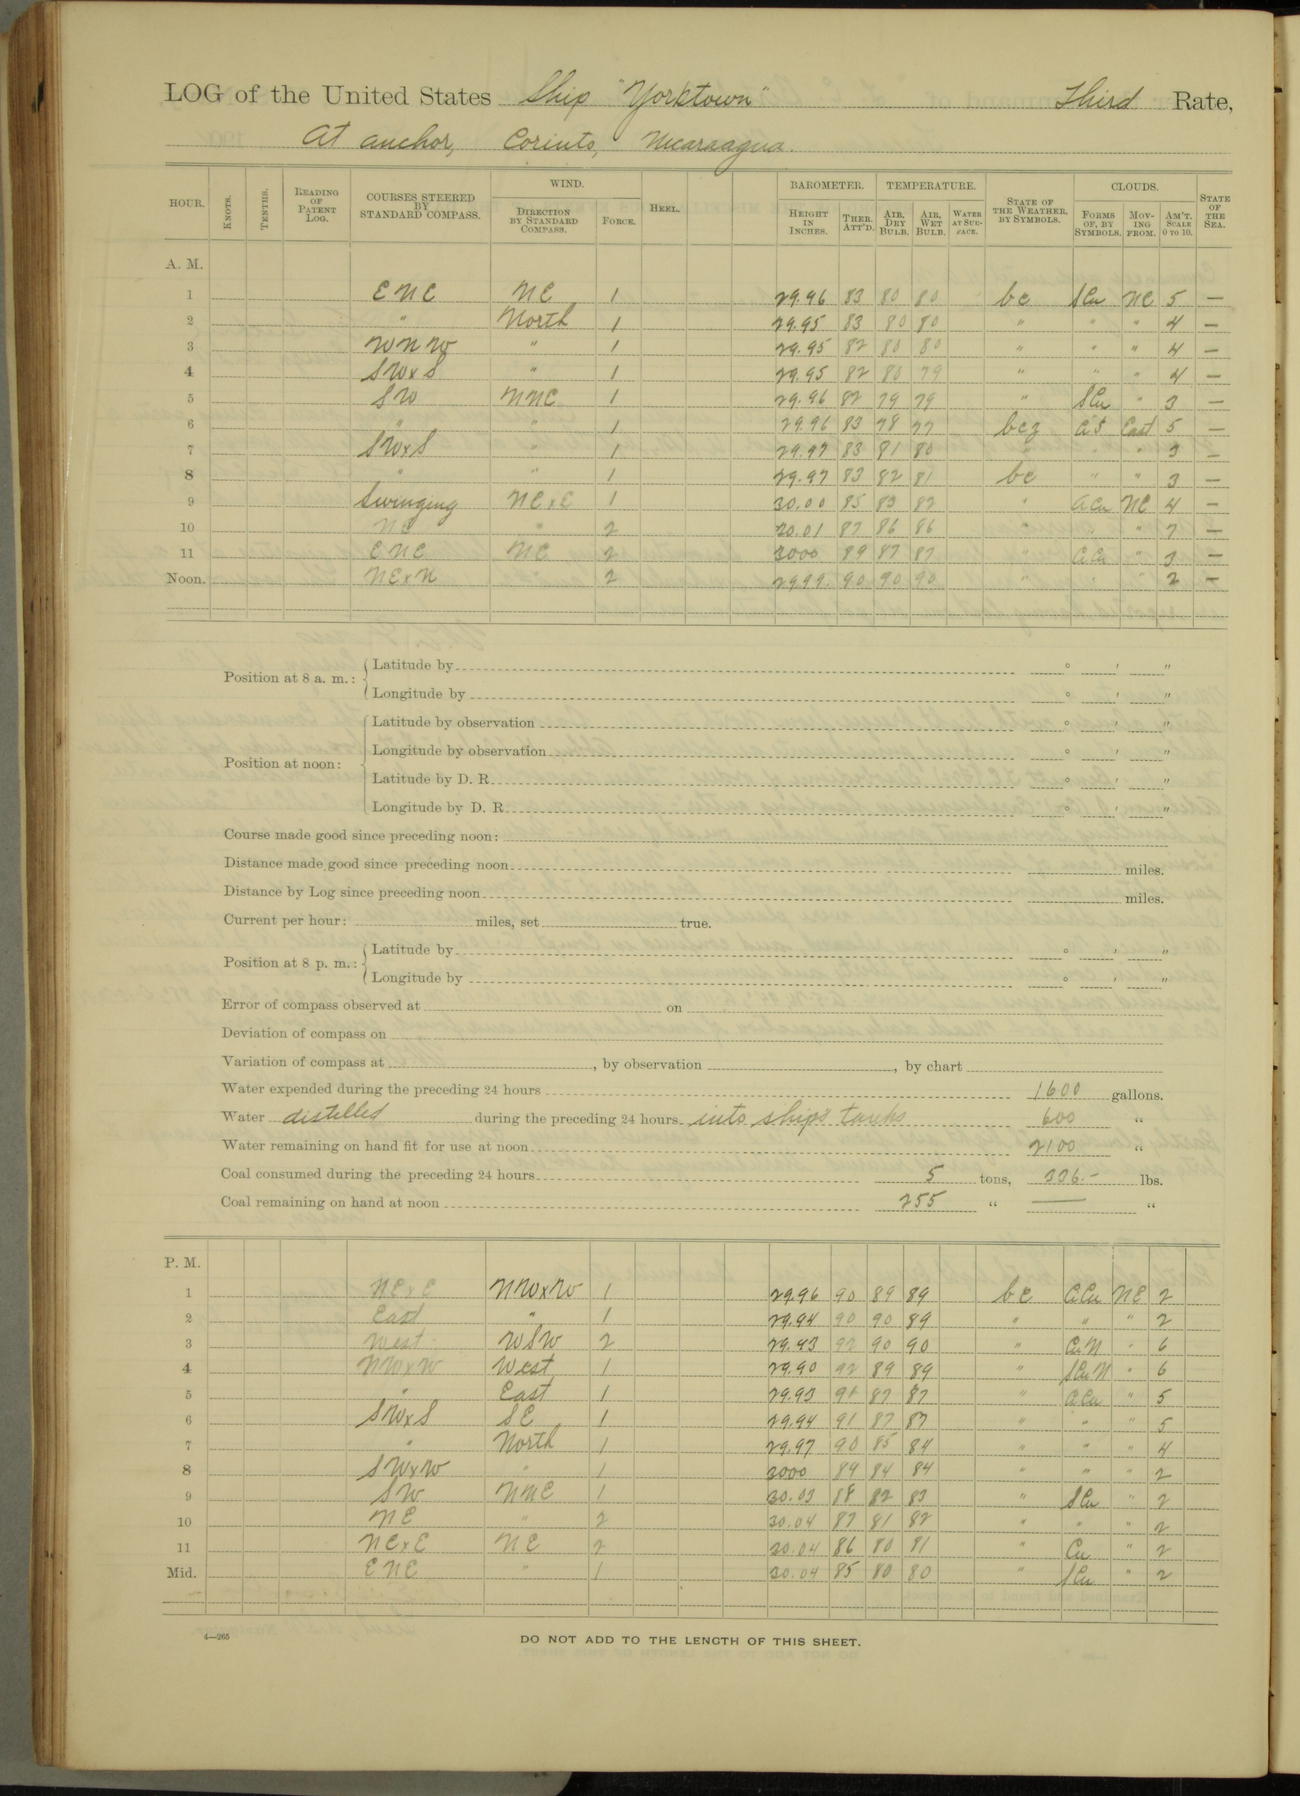 LOG of the United States Ship "Yorktown" Third Rate,
At anchor, Corinto, Nicaragua.
HOUR. KNOTS. TENTHS. READING OF PATENT LOG. COURSES STEERED BY STANDARD COMPASS. WIND. DIRECTION BY STANDARD COMPASS. FORCE. HEEL. BAROMETER. HEIGHT IN INCHES. THER. ATT'D. TEMPERATURE. AIR, DRY BULB. AIR, WET BULB. WATER AT SURFACE. STATE OF THE WEATHER, BY SYMBOLS. CLOUDS. FORMS OF, BY SYMBOLS. MOVING FROM. AM'T. SCALE 0 TO 10. STATE OF THE SEA.
A. M.
1 ENE NE 1 29.96 83 80 80 bc SCu NE 5 —
2 " North 1 29.95 83 80 80 " " " 4 —
3 WNW " 1 29.95 82 80 80 " " " 4 —
4 SWxS " 1 29.95 82 80 79 " " " 4 —
5 SW NNE 1 29.96 82 79 79 " SCu " 3 —
6 " " 1 29.96 83 78 77 bcz AS East 5 —
7 SWxS " 1 29.97 83 81 80 " " " 3 —
8 " " 1 29.97 83 82 81 bc " " 3 —
9 Swinging NExE 1 30.00 85 83 82 " ACu NE 4 —
10 NE " 2 30.01 87 86 86 " " " 2 —
11 ENE NE 2 3000 89 87 87 " CCu " 3 —
Noon. NExN 2 29.99 90 90 90 " " 2 —
Position at 8 a. m.: Latitude by ° ′ ″
Longitude by ° ′ ″
Position at noon: Latitude by observation ° ′ ″
Longitude by observation ° ′ ″
Latitude by D. R. ° ′ ″
Longitude by D. R. ° ′ ″
Course made good since preceding noon:
Distance made good since preceding noon miles.
Distance by Log since preceding noon miles.
Current per hour: miles, set true.
Position at 8 p. m.: Latitude by ° ′ ″
Longitude by ° ′ ″
Error of compass observed at on
Deviation of compass on
Variation of compass at , by observation , by chart
Water expended during the preceding 24 hours 1600 gallons.
Water distilled during the preceding 24 hours into ships tanks 600 "
Water remaining on hand fit for use at noon 2100 "
Coal consumed during the preceding 24 hours 5 tons, 336.- lbs.
Coal remaining on hand at noon 255 " — "
P. M.
1 NExE NWxW 1 29.96 90 89 89 bc CCu NE 2
2 East " 1 29.94 90 90 89 " " " 2
3 West WSW 2 29.93 92 90 90 " CuN " 6
4 NWxW West 1 29.90 92 89 89 " SCuN " 6
5 " East 1 29.93 91 87 87 " ACu " 5
6 SWxS SE 1 29.94 91 87 87 " " " 5
7 " North 1 29.97 90 85 84 " " " 4
8 SWxW " 1 3000 89 84 84 " " " 2
9 SW NNE 1 30.03 88 82 83 " SCu " 2
10 NE " 2 30.04 87 81 82 " " " 2
11 NExE NE 2 30.04 86 80 81 " Cu " 2
Mid. ENE " 1 30.04 85 80 80 " SCu " 2
4—265
DO NOT ADD TO THE LENGTH OF THIS SHEET.